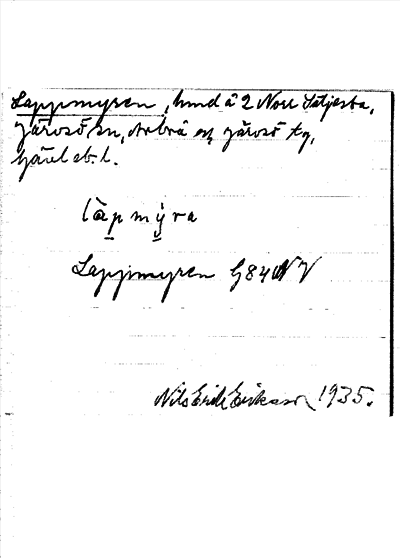 Lappmyren, hmd å 2 Norr Sätjesta,
Järvsö sn, Arbrå o. Järvsö tg,
Gävleb. l.
làpmy̱ra
Lappmyren G84 NV
Nils Erik Erikson 1935.